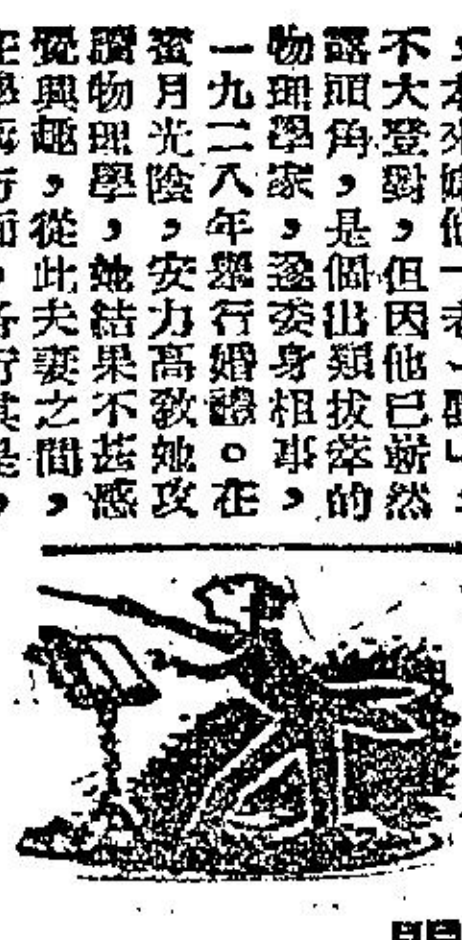 不大登對，但因他已嶄然
露頭角，是個出類拔萃的
物理學家，遂委身相事，
一九二八年舉行婚禮。在
蜜月光陰，安力高敎她攻
讀物理學，她結果不甚感
覺興趣，從此夫妻之間，